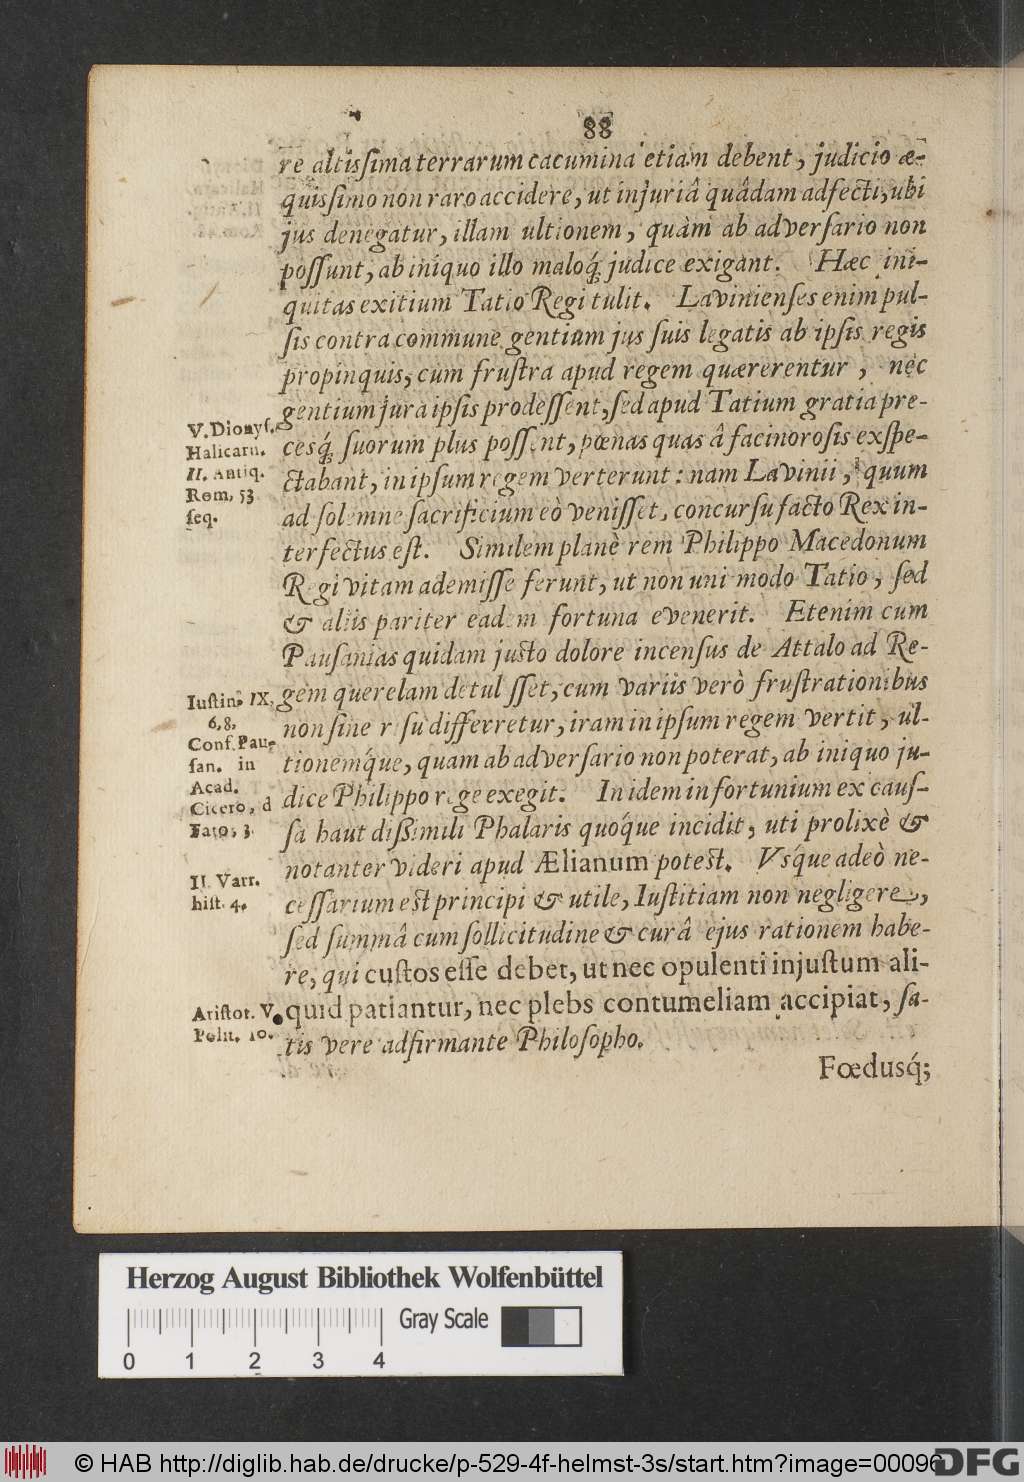 88
re altisſima terrarum cacumina etiam debent, judicio æ-
quisſimo non raro accidere, ut injuriâ quâdam adfecti, ubi
jus denegatur, illam ultionem, quàm ab adverſario non
poſſunt, ab iniquo illo maloq́; judice exigant. Hæc ini-
quitas exitium Tatio Regi tulit. Lavinienſes enim pul-
ſis contra commune gentium jus ſuis legatis ab ipſis regis
propinquis, cum fruſtra apud regem quærerentur, nec
gentium jura ipſis prodeſſent, ſed apud Tatium gratia pre-
cesq́; ſuorum plus poſſent, pœnas quas â facinoroſis exſpe-
ctabant, in ipſum regem verterunt: nam Lavinii, quum
ad ſolemne ſacrificium eò veniſſet, concurſu facto Rex in-
terfectus eſt. Similem planè rem Philippo Macedonum
Regi vitam ademiſſe ferunt, ut non uni modo Tatio, ſed
& aliis pariter eadem fortuna evenerit. Etenim cum
Pauſanias quidam juſto dolore incenſus de Attalo ad Re-
gem querelam detul ſſet, cum variis verò fruſtrationibus
non ſine riſu differretur, iram in ipſum regem vertit, ul-
tionemq́ue, quam ab adverſario non poterat, ab iniquo ju-
dice Philippo rege exegit. In idem infortunium ex cauſ-
ſa haut dißimili Phalaris quoq́ue incidit, uti prolixè &
notanter videri apud Ælianum poteſt. Vsq́ue adeò ne-
ceſſarium eſt principi & utile, Iuſtitiam non negligere,
ſed ſummâ cum ſollicitudine & curâ ejus rationem habe-
re, qui cuſtos eſſe debet, ut nec opulenti injuſtum ali-
quid patiantur, nec plebs contumeliam accipiat, ſa-
tis vere adfirmante Philoſopho.
Fœdusq́;
V. Dionyſ.
Halicarn.
II. Antiq.
Rom, 53
ſeq.
Iuſtin. IX,
6,8,
Conf. Pau-
ſan. in
Acad.
Cicero, d
Fato, 3.
II. Varr.
hiſt. 4.
Ariſtot. V.
Polit. 10.
Herzog August Bibliothek Wolfenbüttel
Gray Scale
0 1 2 3 4
© HAB http://diglib.hab.de/drucke/p-529-4f-helmst-3s/start.htm?image=00096
DFG